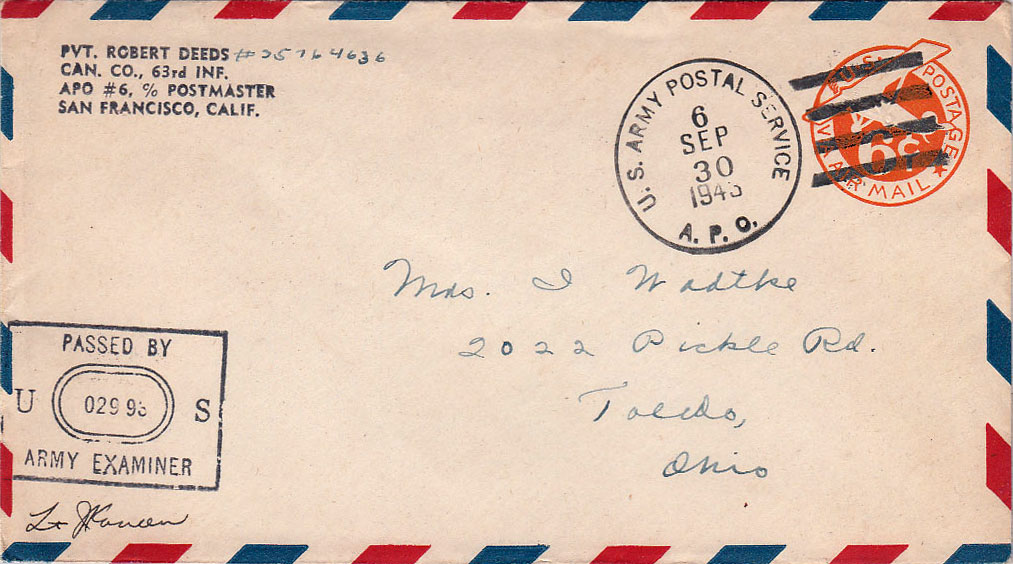 PVT. ROBERT DEEDS #35764636
CAN. CO., 63rd INF.
APO #6, % POSTMASTER
SAN FRANCISCO, CALIF.
U. S. ARMY POSTAL SERVICE
6
SEP
30
1943
A. P. O.
U.S. POSTAGE
6¢
VIA AIR MAIL
Mrs. I Wadtke
2022 Pickle Rd.
Toledo,
Ohio
PASSED BY
U S
ARMY EXAMINER
Lt